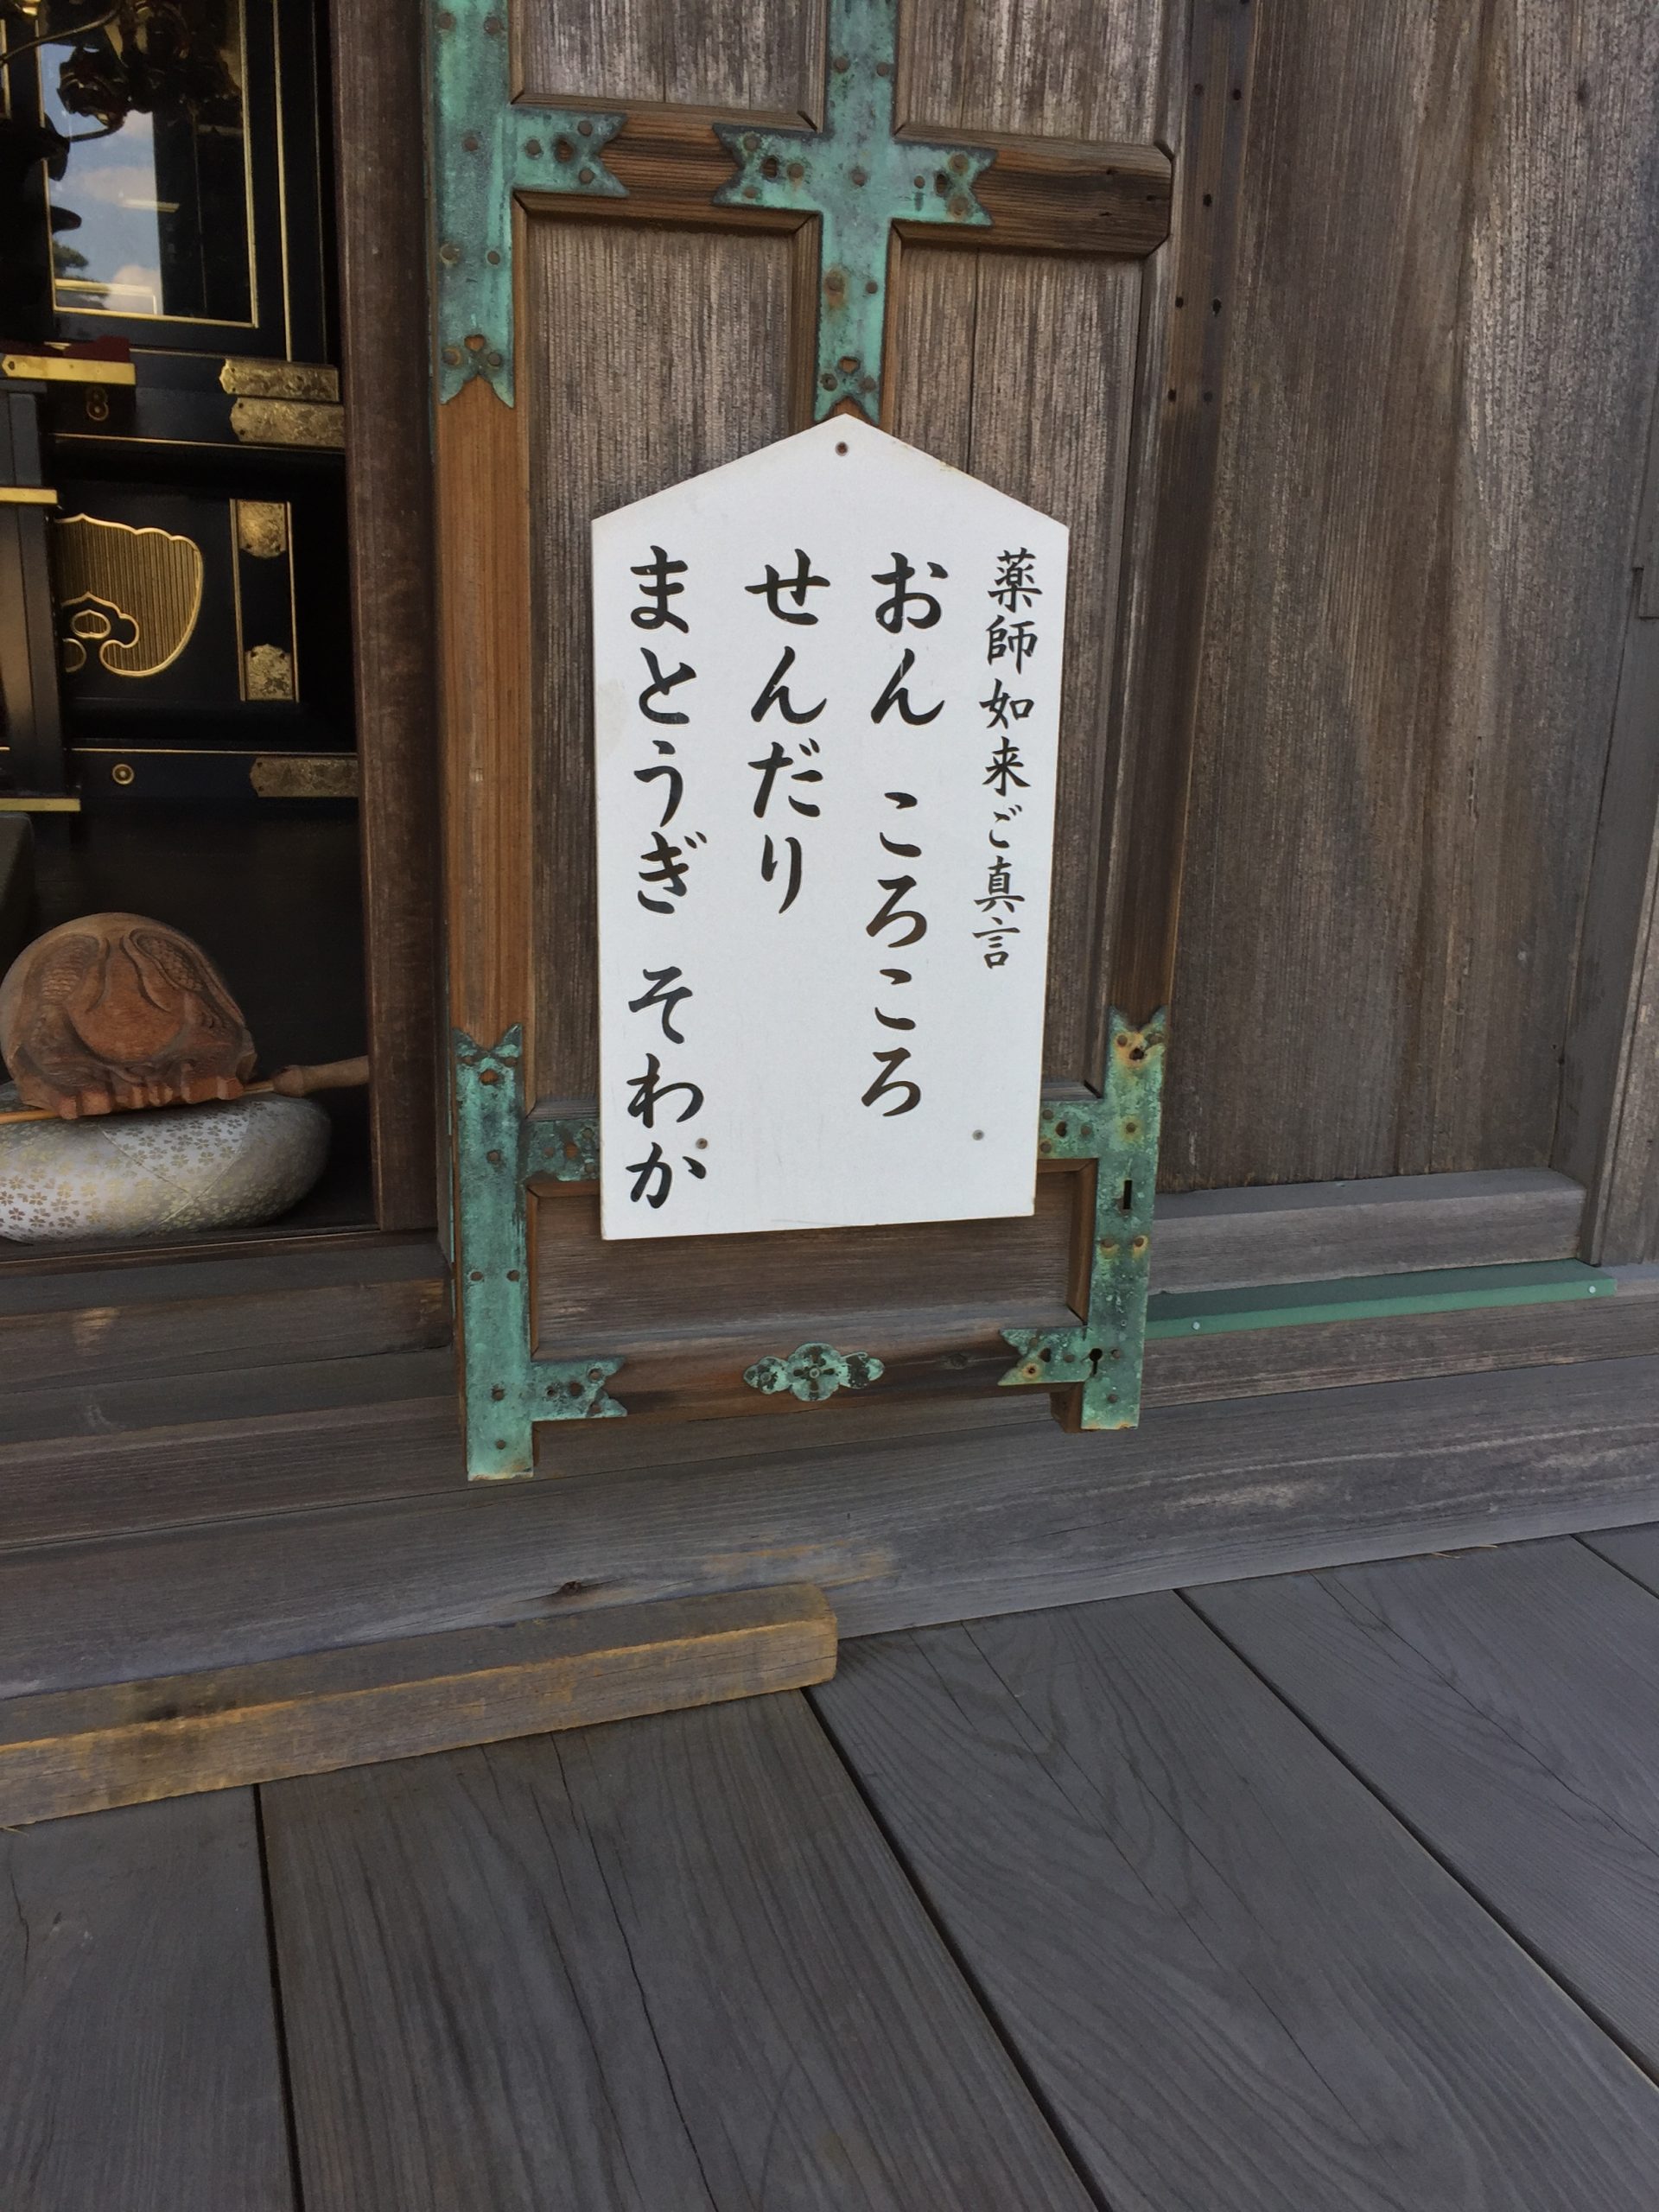 薬師如来ご真言
おん ころころ
せんだり
まとうぎ そわか